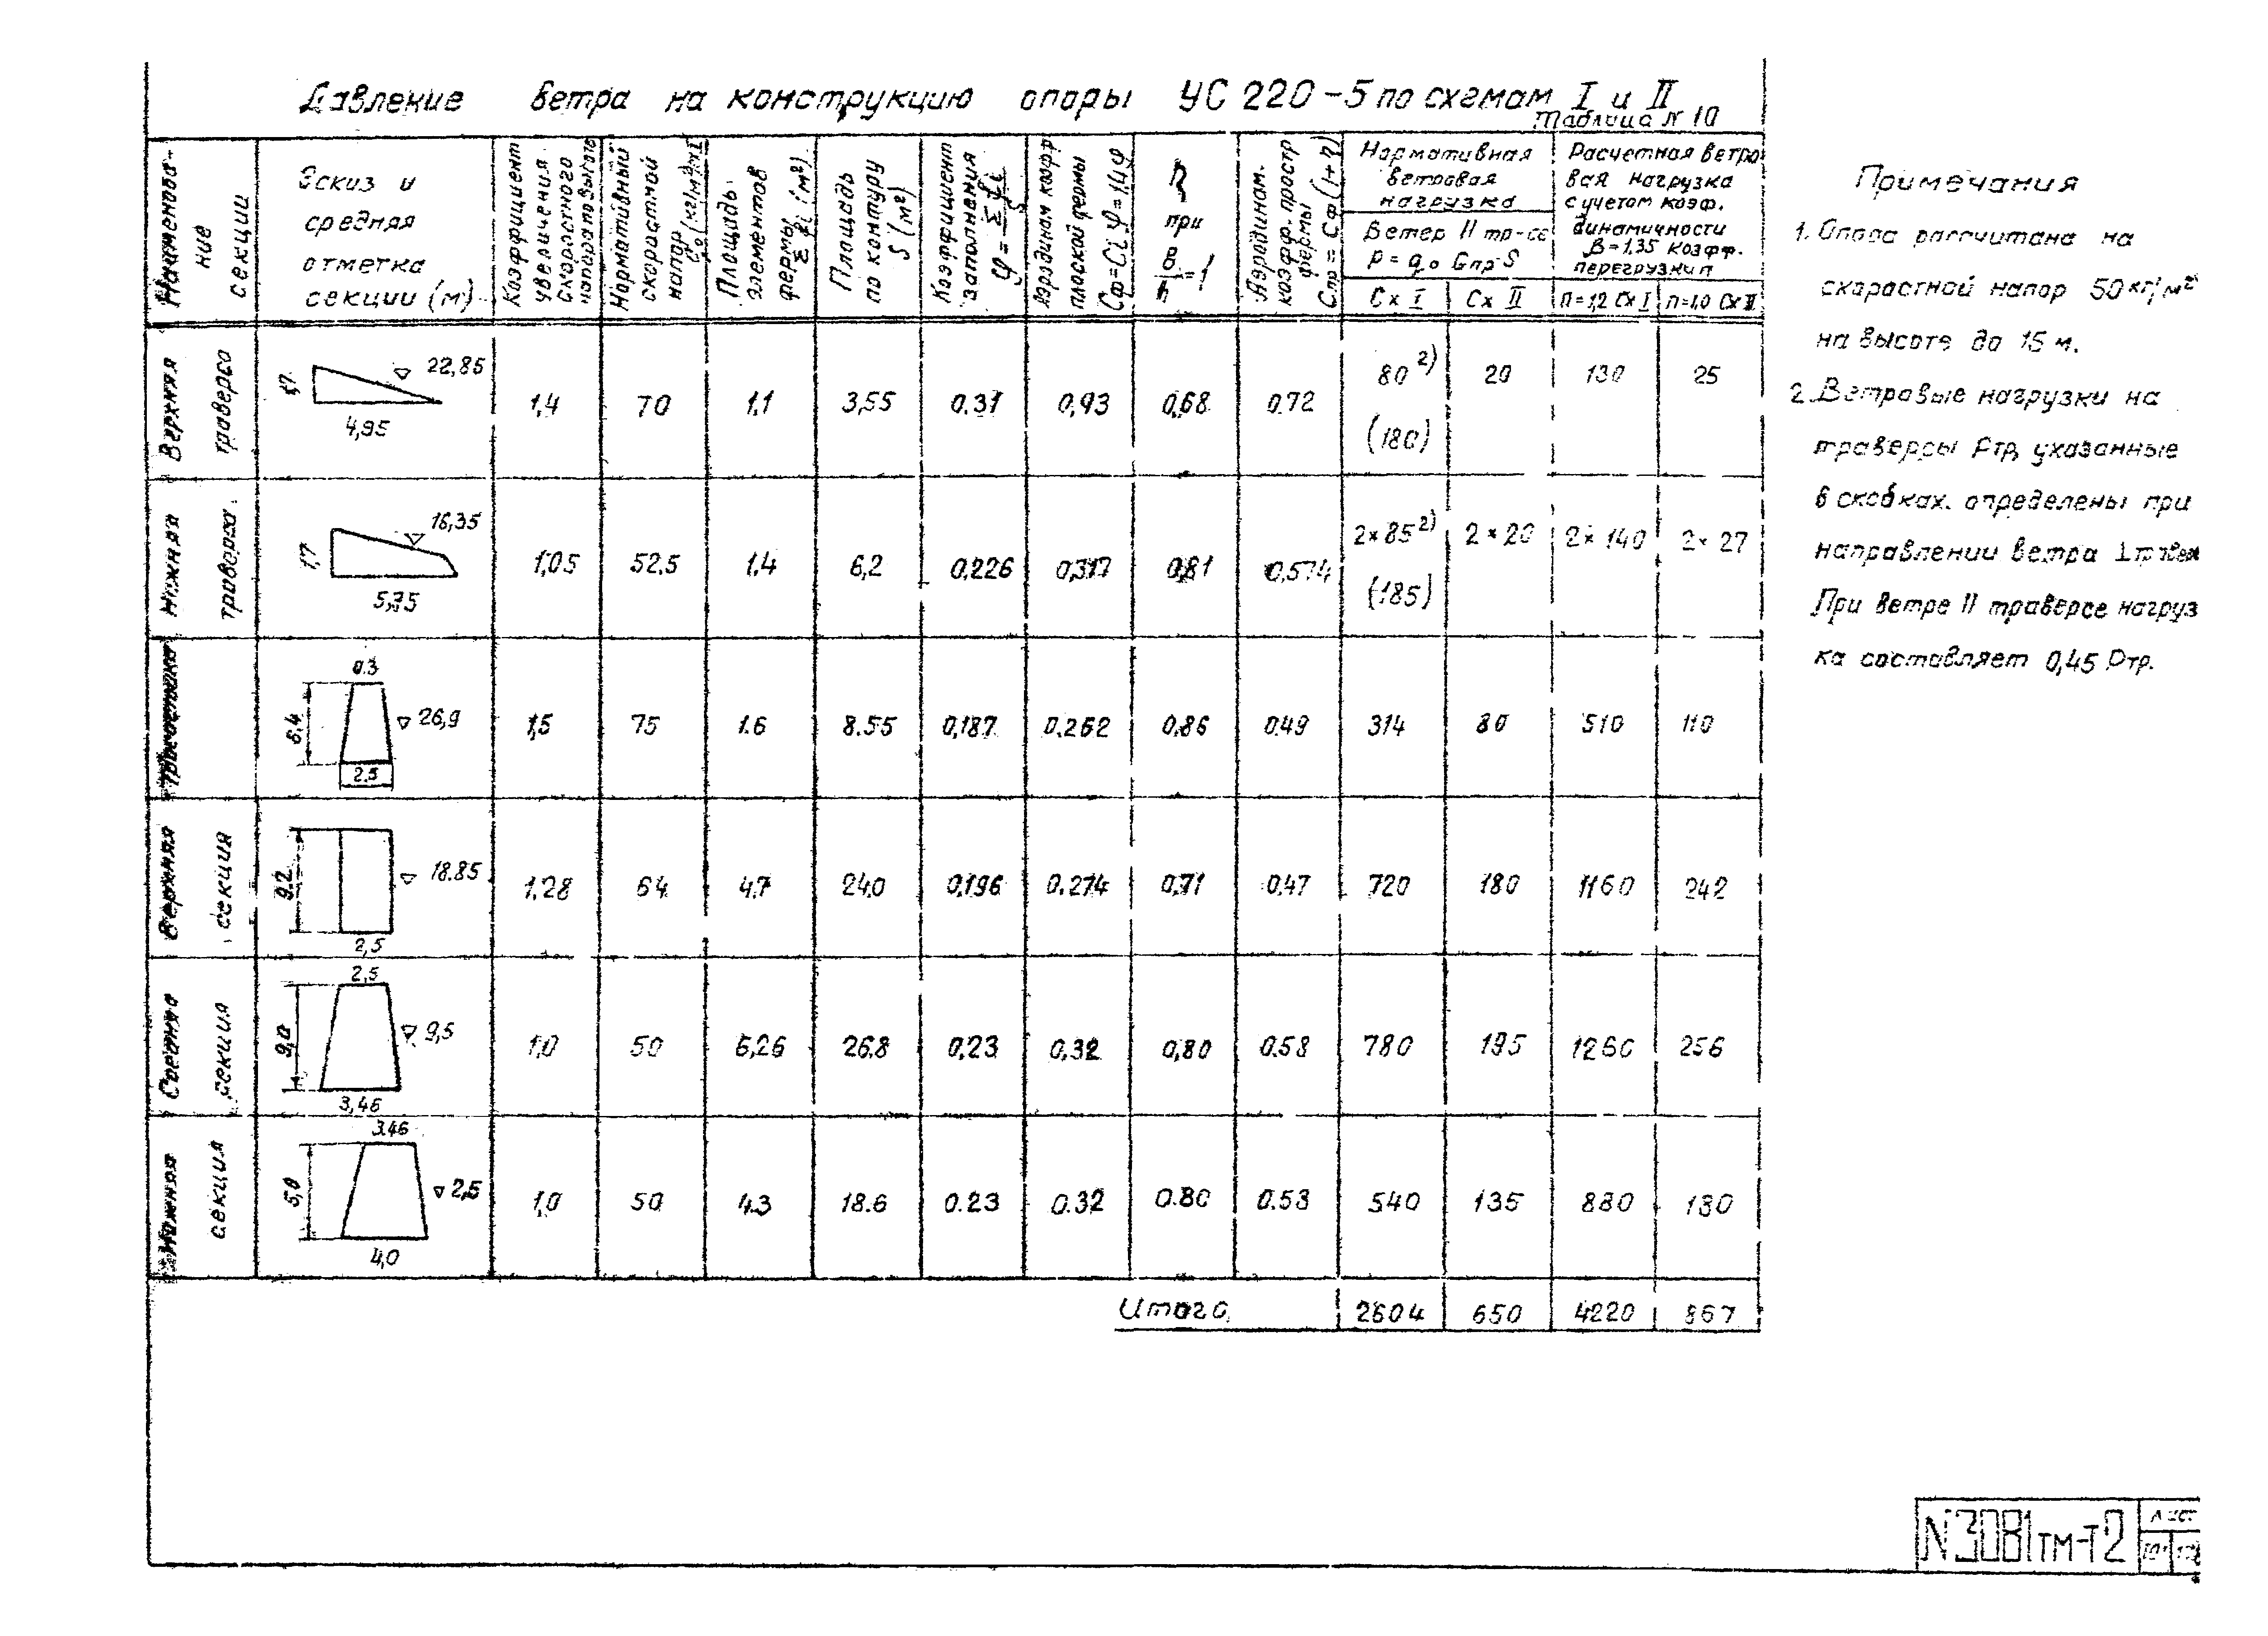 Давление ветра на конструкцию опоры УС 220-5 по схемам I и II
Таблица N 10
Наименование секции
Эскиз и средняя отметка секции (м)
Коэффициент увеличения скоростного напора по высоте
Нормативный скоростной напор q₀ (кг/м²)
Площадь элементов фермы Σ fi (м²)
Площадь по контуру S (м²)
Коэффициент заполнения φ = Σ fi / S
Аэродинам коэфф плоской фермы Сф=Сi φ=1,4φ
η при B/h =1
Аэродинам. коэфф. простр фермы Спр=Сф(1+η)
Нормативная ветровая нагрузка
Ветер II тр-се
P = q₀ Cпр S
Сх I
Сх II
Расчетная ветровая нагрузка с учетом коэф. динамичности β=1,35 коэфф. перегрузки п
п=1,2 Сх I
п=1,0 Сх II
Верхняя траверса
1,7
22,85
4,95
1,4 70 1,1 3,55 0.31 0,93 0,68 0.72 80²⁾ 20 130 25
(180)
Нижняя траверса
1,7
16,35
5,75
1,05 52.5 1,4 6,2 0,226 0,317 0,81 0,574 2×85²⁾ 2×20 2×140 2×27
(185)
Тросостойка
0.3
6,4
26,9
2.5
1,5 75 1.6 8.55 0,187 0.262 0,86 0.49 314 80 510 110
Верхняя секция
9.2
18.85
2,5
1.28 64 4.7 24,0 0,196 0.274 0,71 0.47 720 180 1160 242
Средняя секция
2,5
9,0
9,5
3,46
1,0 50 6,26 26,8 0,23 0,32 0,80 0.58 780 195 1260 256
Нижняя секция
3.46
5,0
2,5
4,0
1,0 50 4.3 18.6 0.23 0.32 0.80 0.58 540 135 880 180
Итого 2604 650 4220 867
Примечания
1. Опора рассчитана на
скоростной напор 50 кг/м²
на высоте до 15 м.
2. Ветровые нагрузки на
траверсы Ртр, указанные
в скобках. определены при
направлении ветра ⊥
При ветре II траверсе нагруз
ка составляет 0,45 Ртр.
N3081тм-т2
Лист